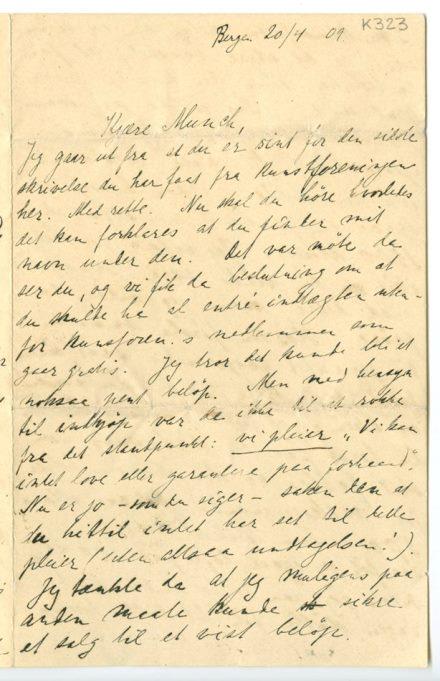 K323
Bergen 20/4 09.
Kjære Munch,
Jeg gaar ut fra at du er vint for den sidste
skrivelse du har faat fra Kunstforeningen
her. Med rette. Nu skal du höre hvorledes
det kan forklares at du finder mit
navn under den. Det var möte da
ser du, og vi fik da beslutning om at
du skulde ha al entré-indtægten uten-
for Kunstforen.'s medlemmer som
gaar gratis. Jeg tror det kunde bli et
noksaa pent belöp. Men med hensyn
til indkjöp var de ikke til at rokke
fra det standpunkt: vi pleier „Vi kan
intet love eller garantere paa forhaand".
Nu er jo – som du siger – saken den at
du hittil intet har set til dette
pleier (uten altsaa undtagelsen!).
Jeg tænkte da at jeg muligens paa
anden maate kunde sikre
et salg til et vist belöp.